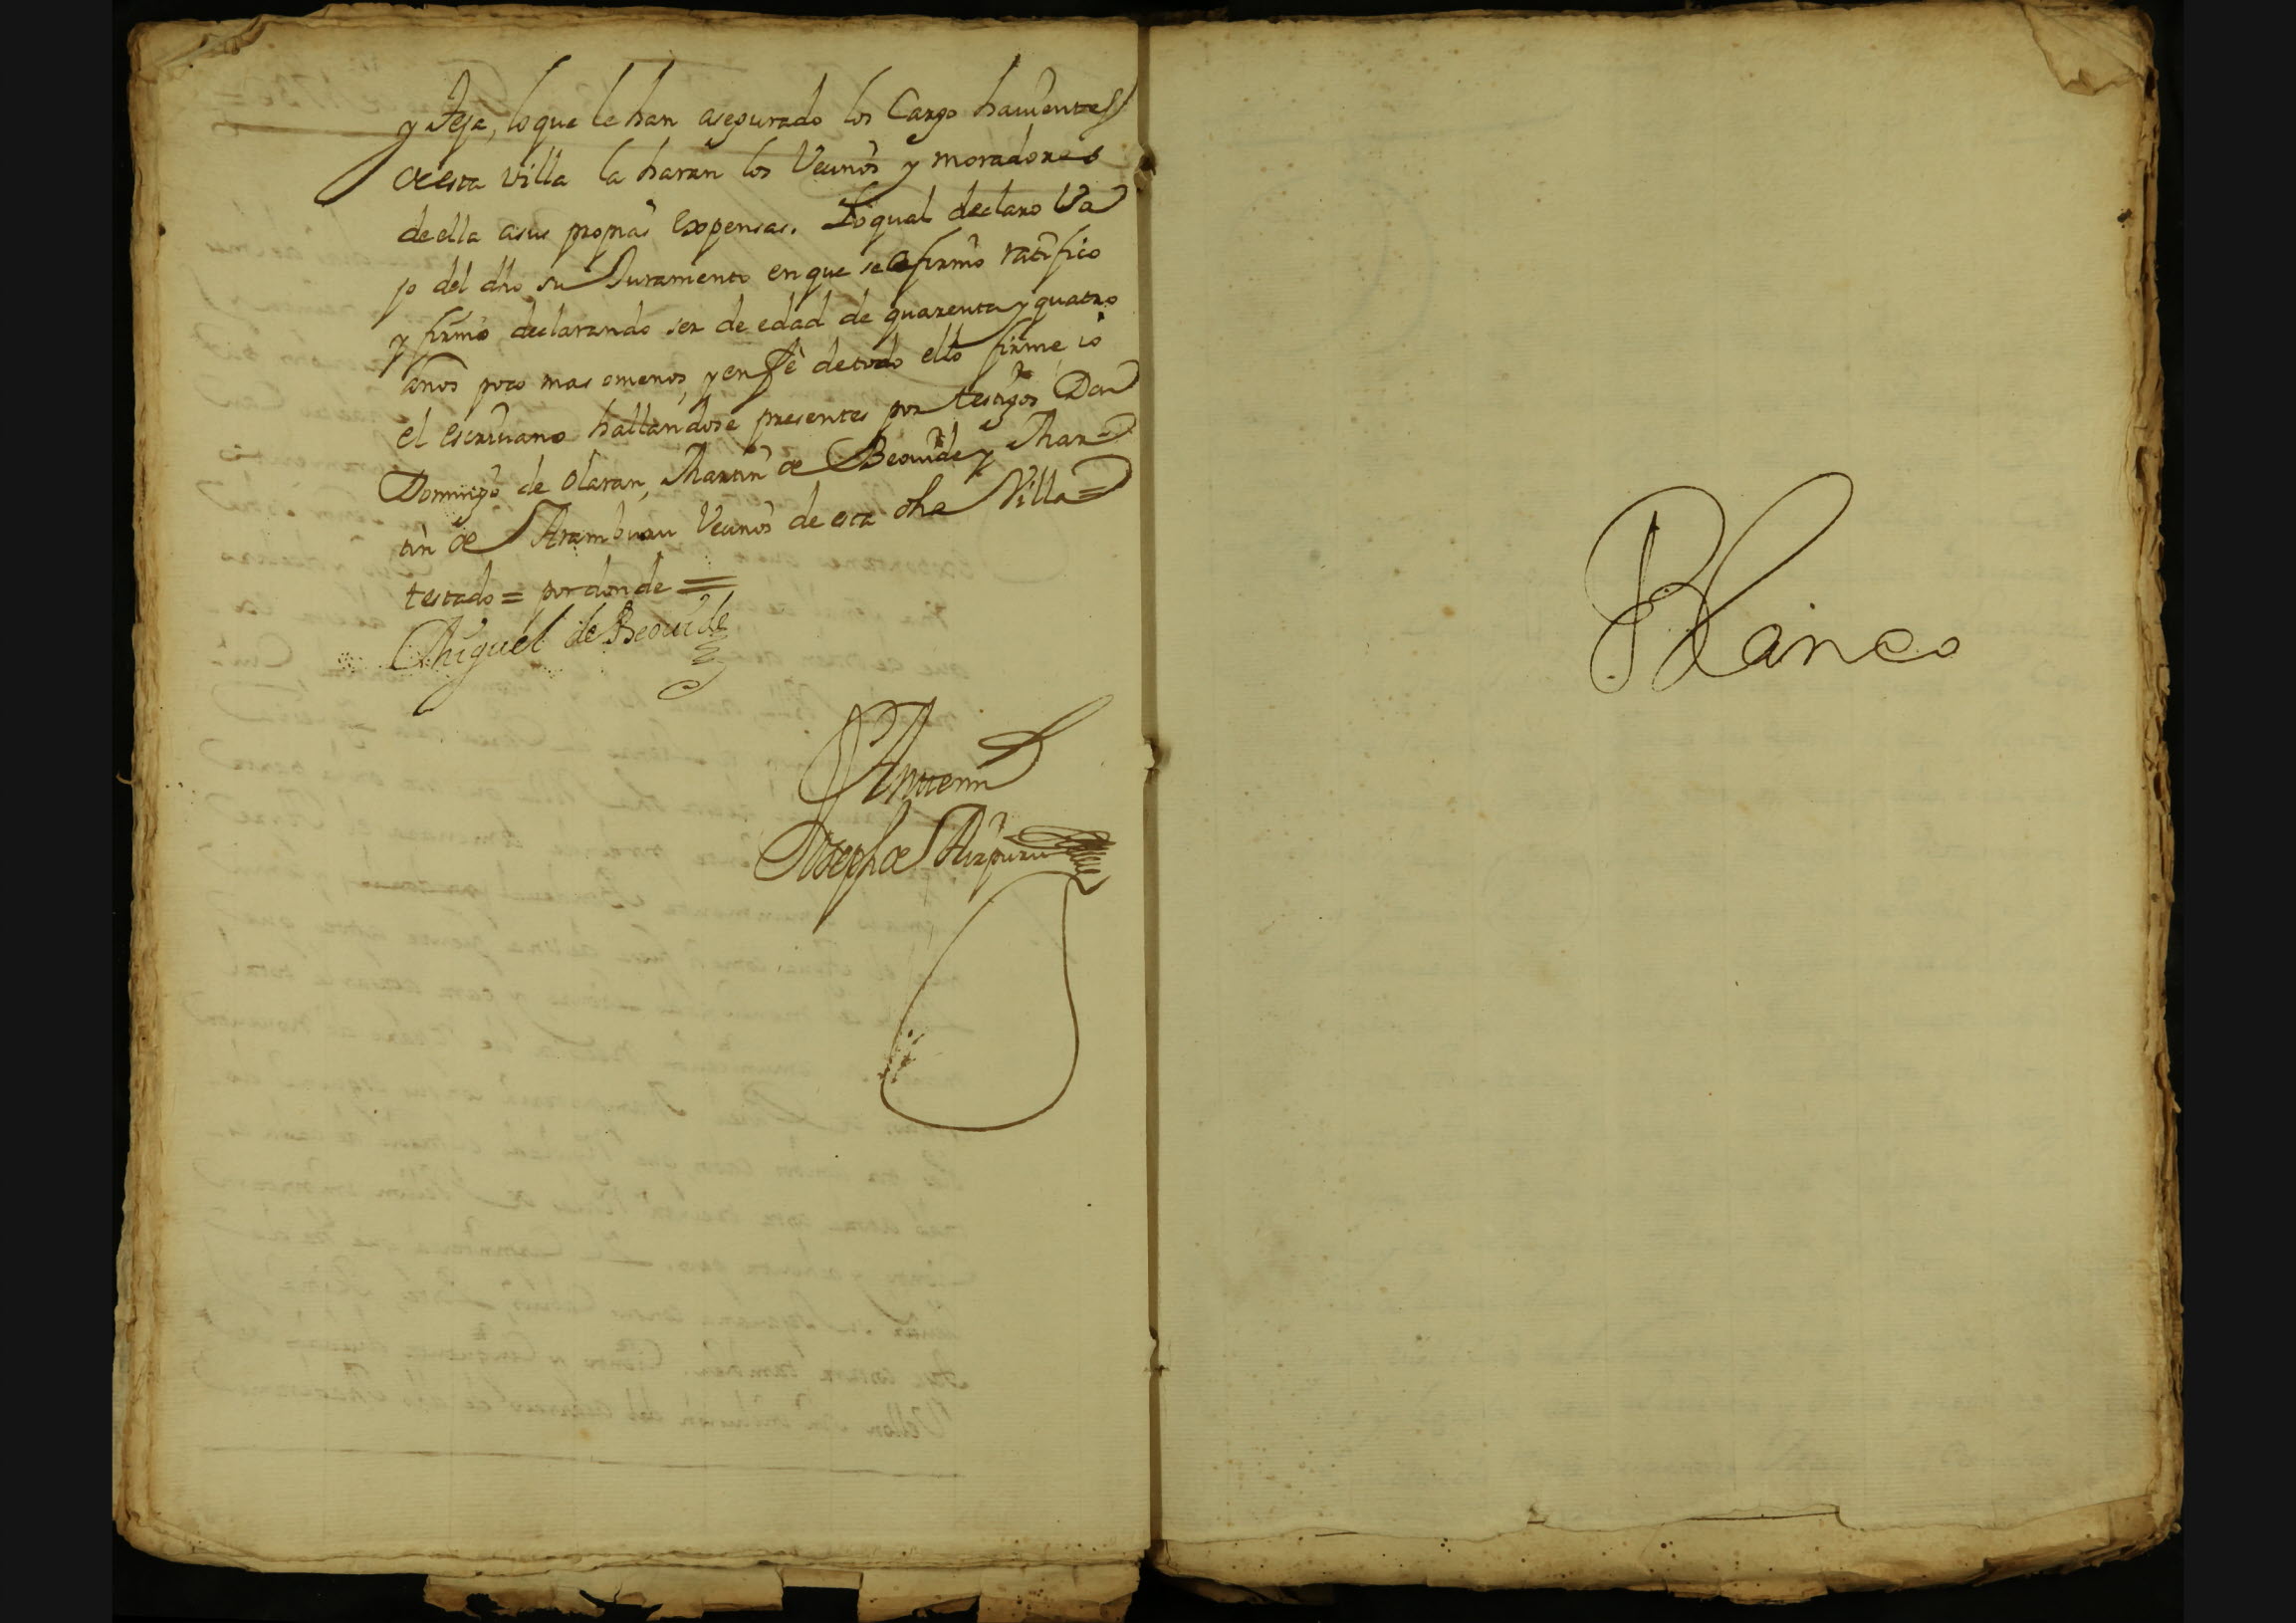 y Teja, lo que le han asegurado los Cargo hauientes
de esta villa la haràn los Vecinòs y moradores
de ella asus propiàs expensas. Lo qual declaro Va
jo del dho su Juramento en que se afirmò ratifico
y firmò declarando ser de edad de quarenta y quatro
años poco mas omenos, y en fè de todo ello firme iò
el escriuano hallandose presentes por testigos Don
Domingo de Olaran, Martin de Beouide y Mar-
tin de Aramburu Vecinòs de esta dha Villa =
testado = por donde =
Miguel de Beouide
Antemi
Joseph de Aizpuru
Blanco